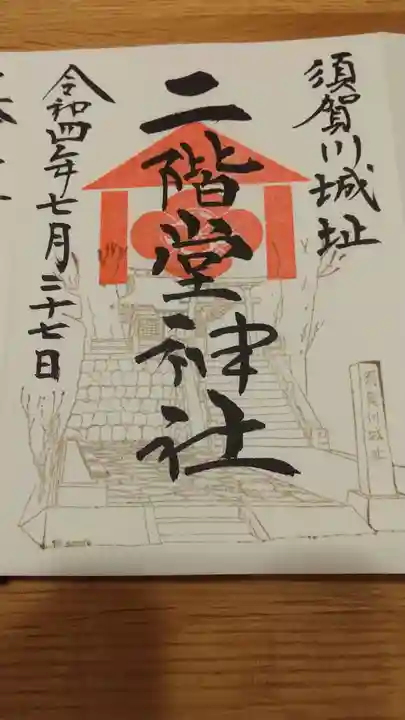 須賀川城址
二階堂神社
令和四年七月二十七日
須賀川城址